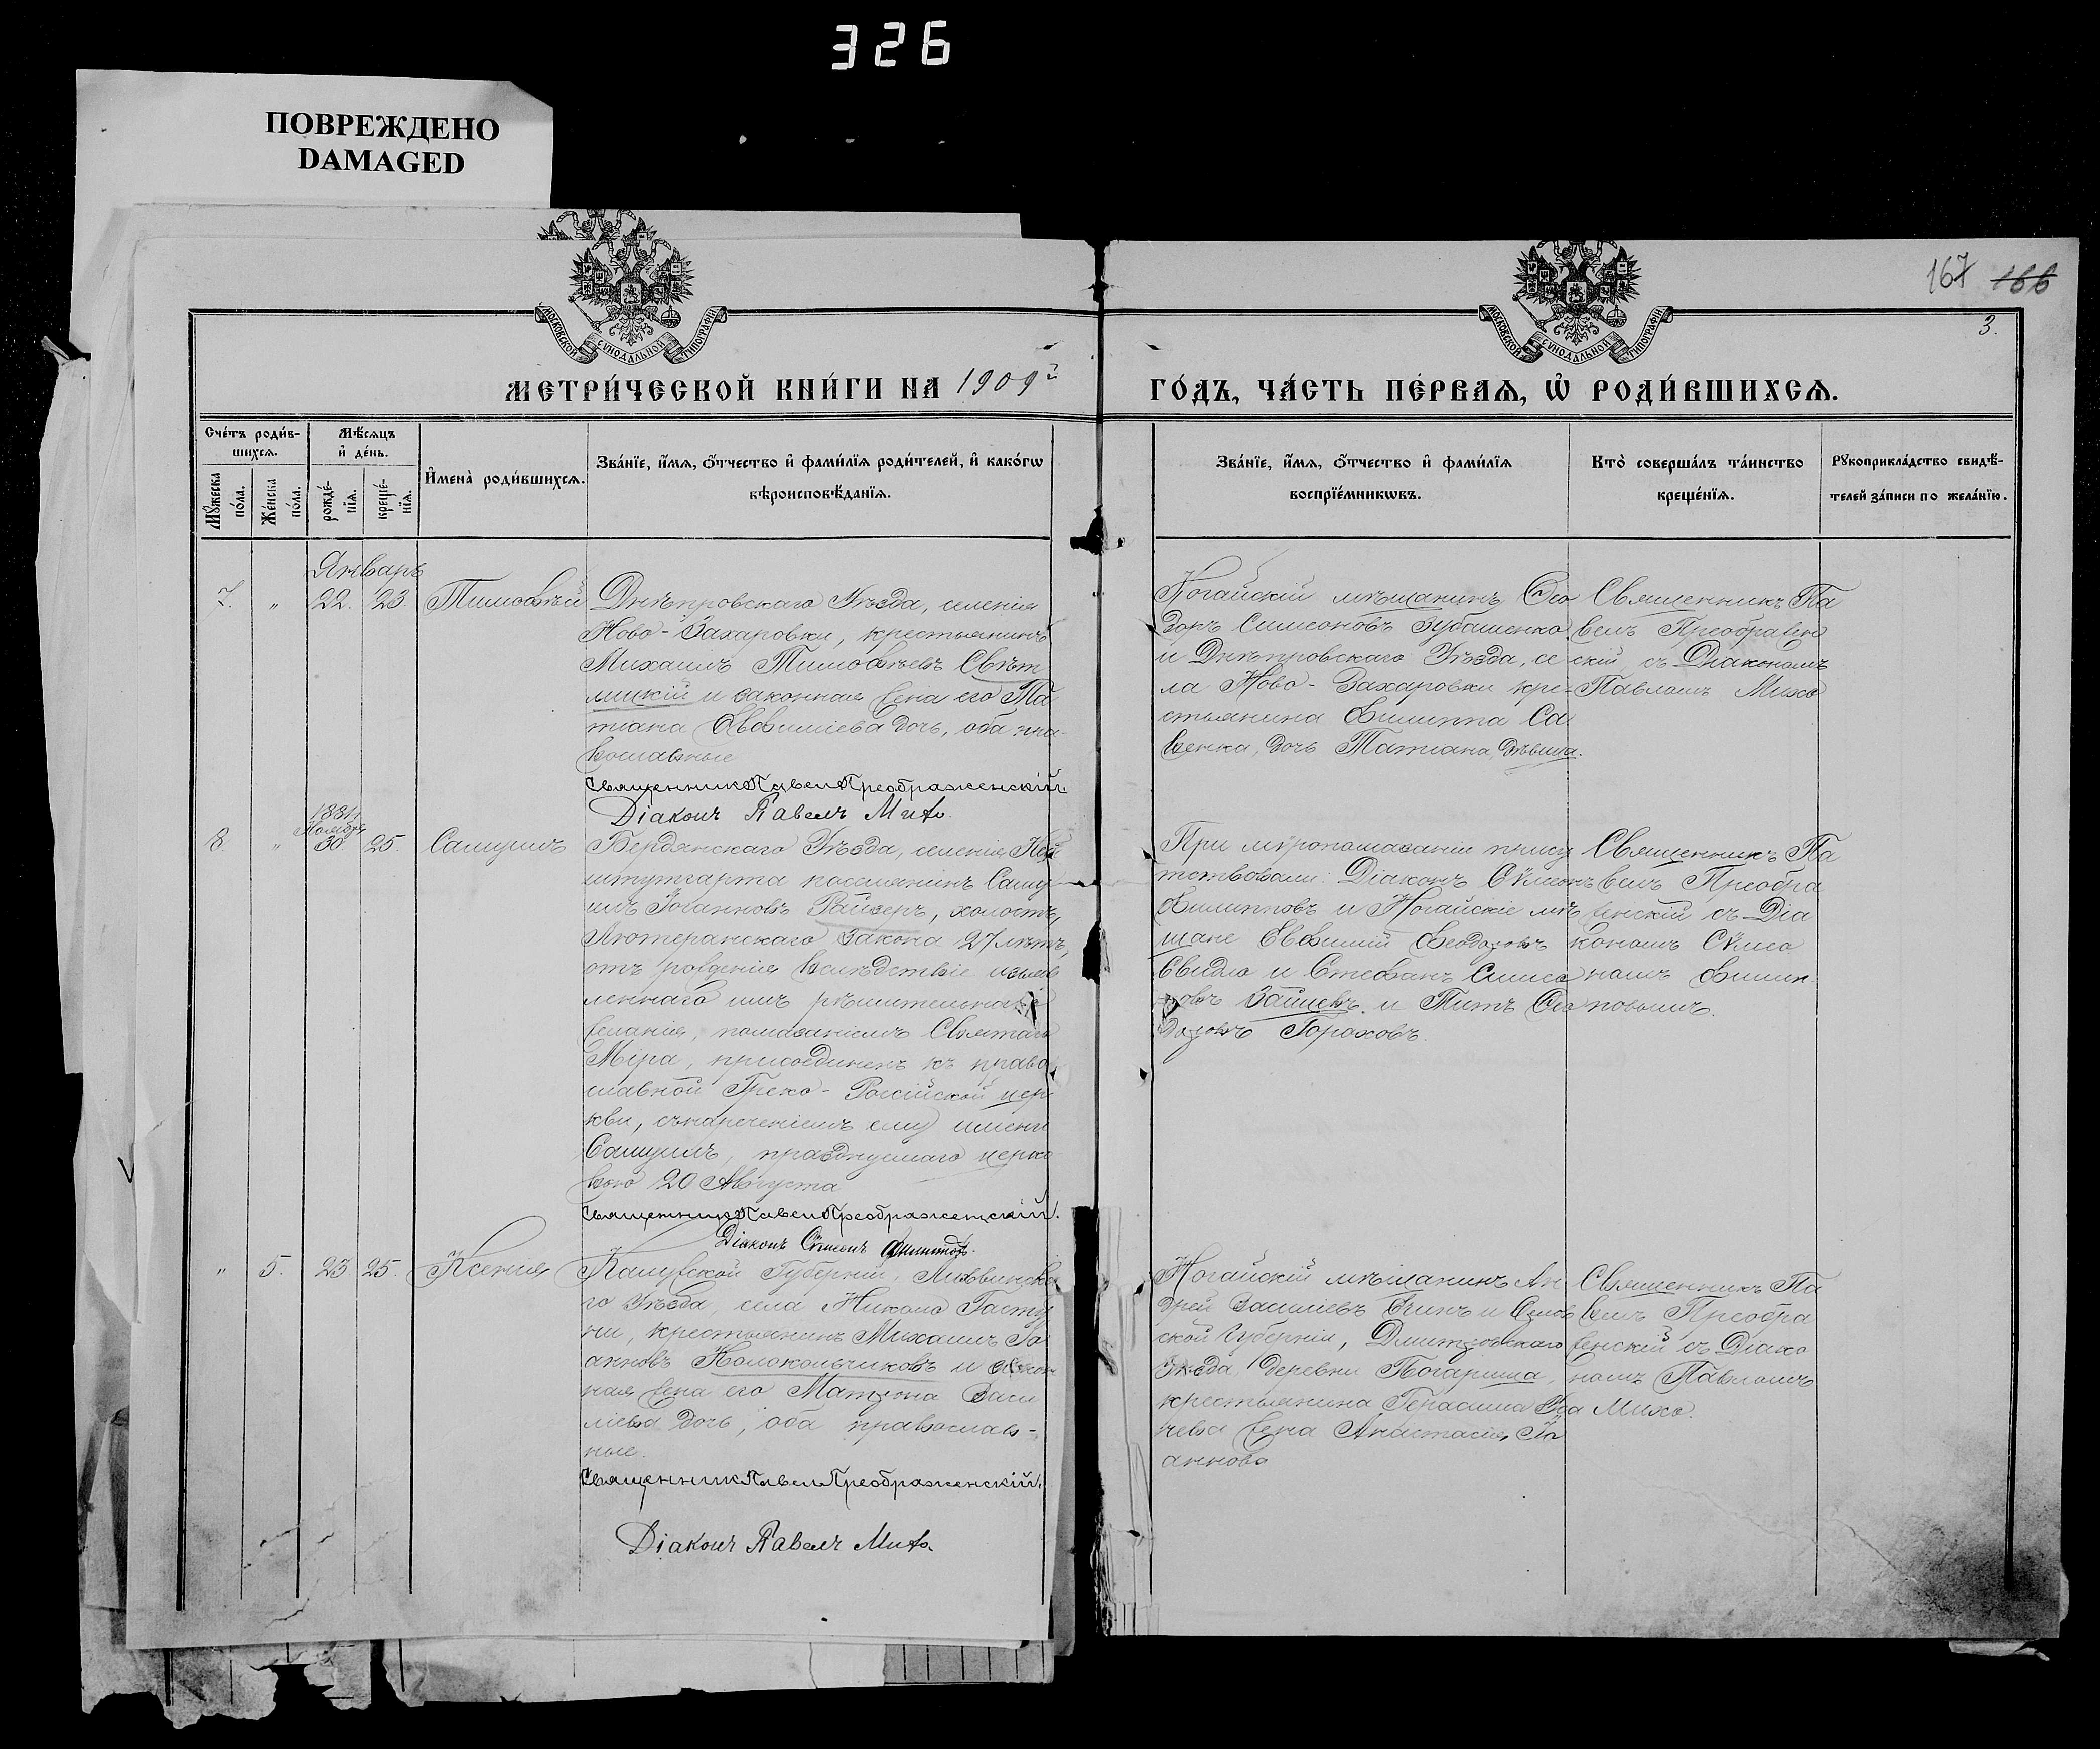 326
ПОВРЕЖДЕНО
DAMAGED
167 166
3.
МОСКОВСКОЙ СѴНОДАЛЬНОЙ ТИПОГРАФІИ
МОСКОВСКОЙ СѴНОДАЛЬНОЙ ТИПОГРАФІИ
МЕТРИ́ЧЕСКОЙ КНИ́ГИ НА 1909й
ГО́ДЪ, ЧА́СТЬ ПЕ́РВАѦ, Ѽ РОДИ́ВШИХСѦ.
Сче́тъ роди́в-
шихсѧ.
Мѣ́сѧцъ
и҆ де́нь.
Мꙋ́жеска
по́ла.
Же́нска
по́ла.
рожде́-
нїѧ.
креще́-
нїѧ.
И҆мена̀ роди́вшихсѧ.
Зва́нїе, и҆́мѧ, ѻ҆́тчество и҆ фами́лїѧ роди́телей, и҆ како́гѡ
вѣроисповѣ́данїѧ.
Зва́нїе, и҆́мѧ, ѻ҆́тчество и҆ фами́лїѧ
воспрїе́мникѡвъ.
Кто̀ соверша́лъ та́инство
креще́нїѧ.
Рꙋкоприкла́дство свидѣ́-
телей за́писи по жела́нїю.
Январь
7. " 22. 23. Тимоѳей
Днѣпровскаго Уѣзда, селенія
Ново-Захаровки, крестьянинъ
Михаилъ Тимоѳеевъ Свѣт
лицкій и законная жена его Та
тіана Евѳиміева дочь, оба пра-
вославные
Священникъ Павелъ Преображенскій.
Діаконъ Павелъ Михо.
Ногайскій мѣщанинъ Ѳео
доръ Симеоновъ Зубашенко
и Днѣпровскаго Уѣзда, се
ла Ново-Захаровки кре-
стьянина Филиппа Са
венка, дочь Татіана, дѣвица.
Священникъ Па
велъ Преображен
скій съ Діакономъ
Павломъ Михо
1881 г.
Ноябрь
8. " 30 25. Самуилъ
Бердянскаго Уѣзда, селенія Ней
штутгарта поселянинъ Саму
илъ Іоганновъ Райзеръ, холостъ,
Лютеранскаго закона 27 лѣтъ,
отъ рожденія вслѣдствіе изъяв
леннаго имъ рѣшительнаго
желанія, помазаніемъ Святаго
Мѵра, присоединенъ къ право
славной Греко-Россійской цер
кви, съ нареченіемъ ему имени
Самуилъ, празднуемаго церко
вью 20 Августа
Священникъ Павелъ Преображенскій.
Діаконъ Сѵмеонъ Филипповъ.
При мѵропомазаніи прису
тствовали: Діаконъ Сѵмеонъ
Филипповъ и Ногайскіе мѣ
щане Евѳимій Ѳеодоровъ
Свидло и Стефанъ Симео
новъ Зайцевъ и Титъ Ѳео
доровъ Гороховъ.
Священникъ Па
велъ Преобра
женскій съ Діа
кономъ Сѵмео
номъ Филип
повымъ.
" 5. 23 25. Ксенія
Калужской Губерніи, Лихвинска
го Уѣзда, села Николо Гасту
ни, крестьянинъ Михаилъ Іо
анновъ Колокольчиковъ и закон
ная жена его Матрона Васи
ліева дочь, оба православ-
ные.
Священникъ Павелъ Преображенскій.
Діаконъ Павелъ Михо.
Ногайскій мѣщанинъ Ан
дрей Василіевъ и
ской Губерніи, Дмитровскаго
Уѣзда, деревни
крестьянина Герасима
жена Анастасія Іо
аннова
Священникъ Па
велъ Преобра
женскій съ Діако
номъ Павломъ
Михо.